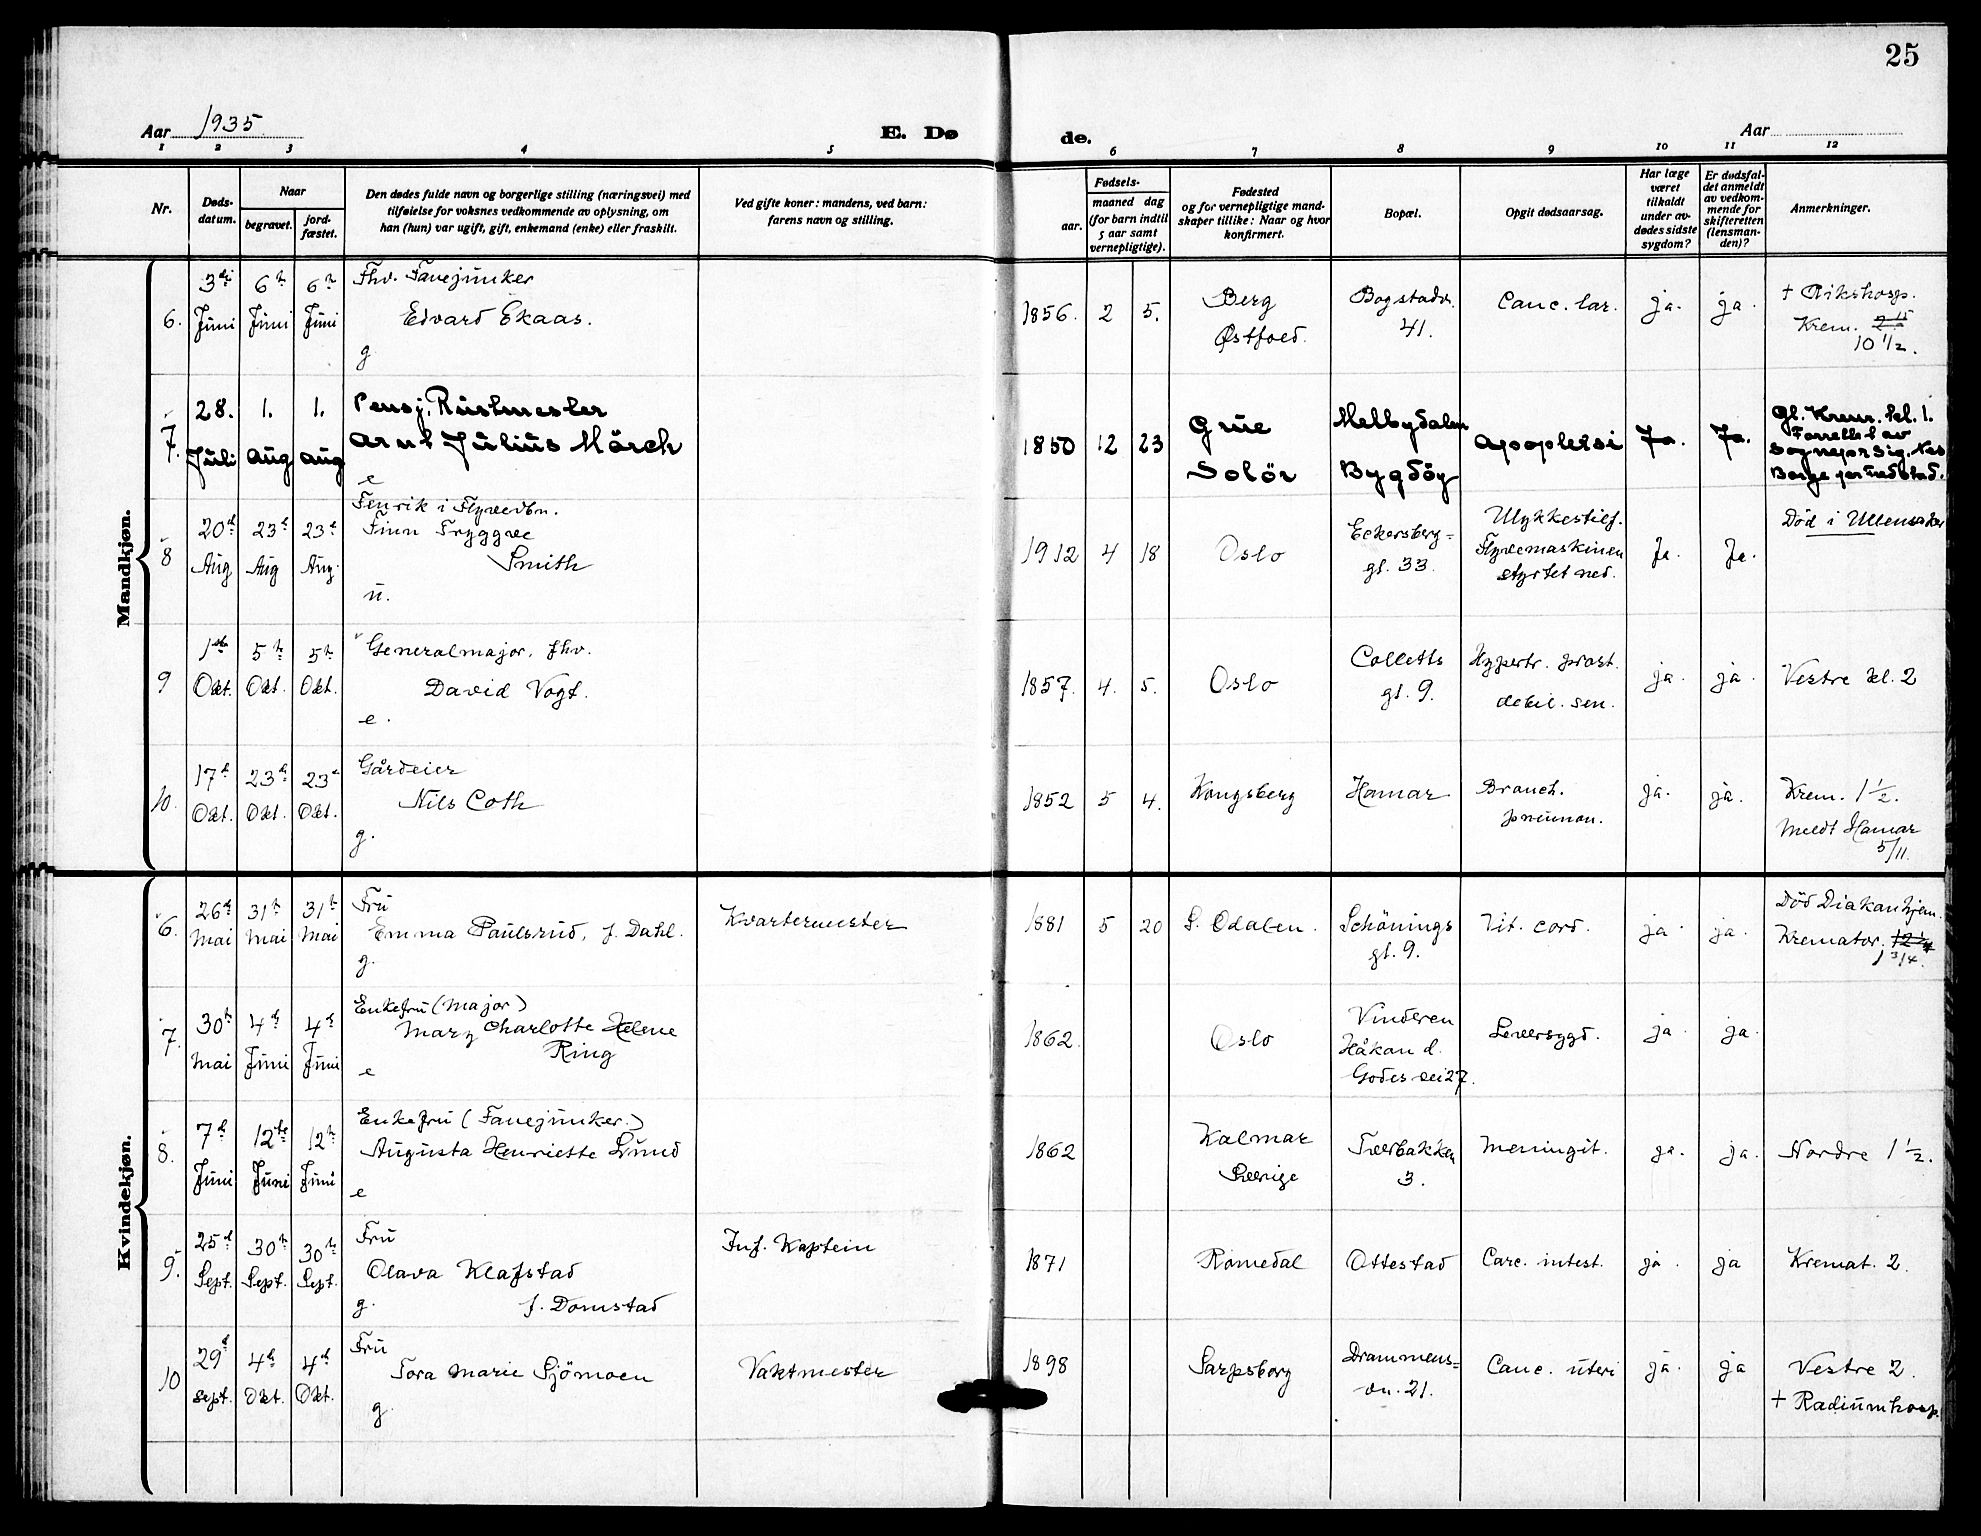 25
Aar 1935
E. Dø
de.
Aar
1 2 3 4 5 6 7 8 9 10 11 12
Nr.
Døds-
datum.
Naar
begravet.
jord-
fæstet.
Den dødes fulde navn og borgerlige stilling (næringsvei) med
tilføielse for voksnes vedkommende av oplysning, om
han (hun) var ugift, gift, enkemand (enke) eller fraskilt.
Ved gifte koner: mandens, ved barn:
farens navn og stilling.
Fødsels-
aar.
maaned dag
(for barn indtil
5 aar samt
vernepligtige).
Fødested
og for vernepligtige mand-
skaper tillike: Naar og hvor
konfirmert.
Bopæl.
Opgit dødsaarsag.
Har læge
været
tilkaldt
under av-
dødes sidste
sygdom?
Er dødsfal-
det anmeldt
av vedkom-
mende for
skifteretten
(lensman-
den)?
Anmerkninger.
Mandkjøn.
6.
3di
Juni
6te
Juni
6te
Juni
Fhv. Fanejunker
Edvard Ekaas.
g
1856. 2 5.
Berg
Østfold.
Bogstadv.
41.
Canc. lar.
ja.
ja.
† Rikshosp.
Krem.
10 1/2.
7.
28.
Juli
1.
Aug
1.
Aug
Pensj. Rustmester
Arnt Julius Mörch
e
1850 12 23
Grue
Solör
Melbydalen
Bygdöy
Apopleksi
Ja.
Ja.
Gl. Krem. kl. 1.
Forrettet av
Sognepr Sig. Nes
Borge pr Fredstad.
8
20d
Aug
23d
Aug
23d
Aug.
Fenrik i Flyvevbn.
Finn Tryggve
Smith
u.
1912 4 18
Oslo
Eckersberg-
gt. 33.
Ulykkestilf.
Flyvemaskinen
styrtet ned.
Ja.
Ja.
Död i Ullensaker
9
1ste
Okt.
5te
Okt.
5te
Okt.
Generalmajor, fhv.
David Vogt.
e.
1857. 4. 5.
Oslo
Colletts
gt. 9.
Hypertr. prost.
debil. sen.
ja.
ja.
Vestre kl. 2
10.
17d
Okt.
23d
Okt.
23d
Okt.
Gårdeier
Nils Coth
g.
1852 5 4.
Kongsberg
Hamar
Bronch.
pneumon.
ja.
ja.
Krem. 1 1/2.
Meldt Hamar
5/11.
Kvindekjøn.
6.
26d
Mai
31te
Mai
31te
Mai
Fru
Emma Paulsrud, f. Dahl.
g.
Kvartermester
1881 5 20
S. Odalen.
Schönings
gt. 9.
Vit. cord.
ja.
ja.
Död Diakonhjem.
Kremator.
1 3/4.
7.
30te
Mai
4d
Juni
4d
Juni
Enkefru (Major)
Mary Charlotte Helene
Ring
e
1862.
Oslo
Vinderen
Håkon d.
Godes vei 27.
Leversygd.
ja.
ja.
8.
7d
Juni
12te
Juni
12te
Juni
Enkefru (Fanejunker.)
Augusta Henriette Lund
e
1862
Kalmar
Sverige
Tverbakken
3.
Meningit.
ja.
ja.
Nordre 1 1/2.
9.
25d
Sept.
30te
Sept.
30te
Sept.
Fru
Olava Klafstad
g. f. Domstad
Inf. Kaptein
1871
Romedal
Ottestad
Carc. intest.
ja.
ja
Kremat. 2.
10
29d
Sept.
4d
Okt.
4d
Okt.
Fru
Tora Marie Sjömoen
g.
Vaktmester
1898
Sarpsborg
Drammens-
vn. 21.
Canc. uteri
ja.
ja
Vestre 2.
† Radiumhosp.